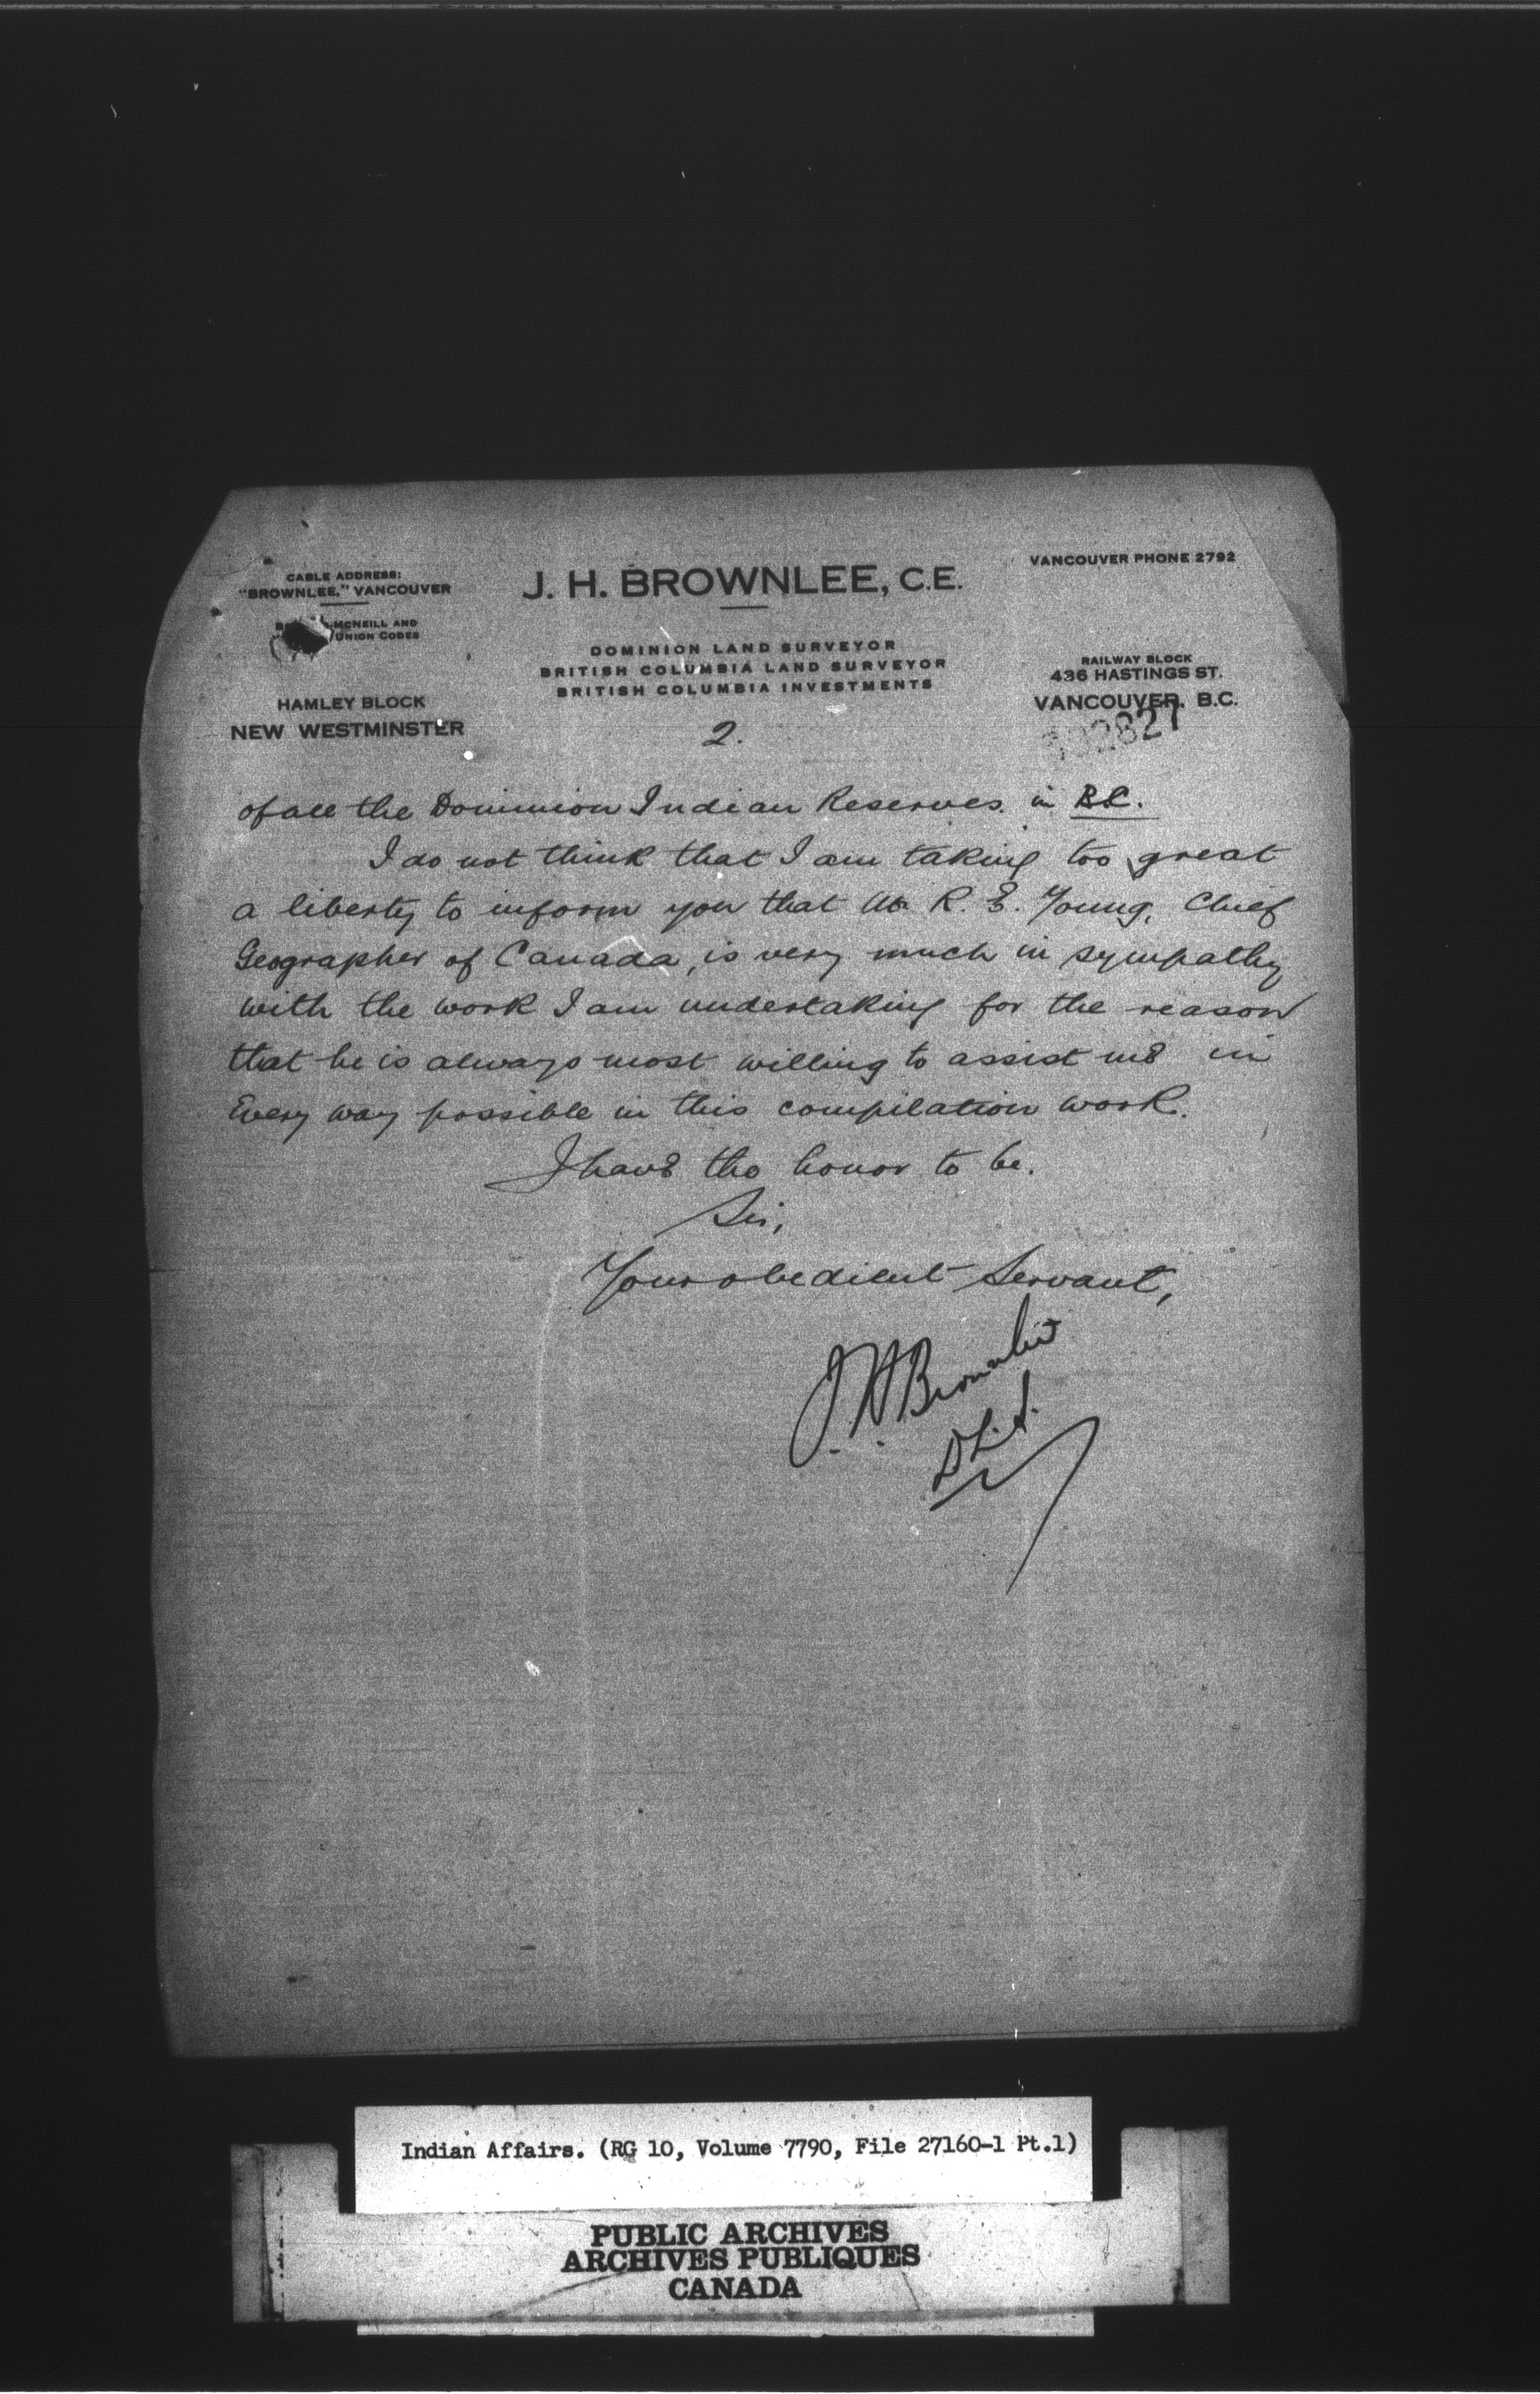 CABLE ADDRESS:
"BROWNLEE," VANCOUVER
MCNEILL AND
UNION CODES
HAMLEY BLOCK
NEW WESTMINSTER
J. H. BROWNLEE, C.E.
DOMINION LAND SURVEYOR
BRITISH COLUMBIA LAND SURVEYOR
BRITISH COLUMBIA INVESTMENTS
VANCOUVER PHONE 2792
RAILWAY BLOCK
436 HASTINGS ST.
VANCOUVER, B.C.
2.
of all the Dominion Indian Reserves in B.C.
I do not think that I am taking too great
a liberty to inform you that Mr. R. E. Young, Chief
Geographer of Canada, is very much in sympathy
with the work I am undertaking for the reason
that he is always most willing to assist me in
Every way possible in this compilation work.
I have the honor to be.
Sir,
Your obedient Servant,
J. H. Brownlee
D.L.S.
Indian Affairs. (RG 10, Volume 7790, File 27160-1 Pt.1)
PUBLIC ARCHIVES
ARCHIVES PUBLIQUES
CANADA